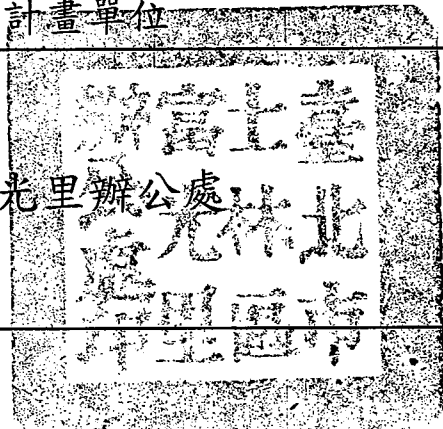 計畫單位
光里辦公處
臺北市
士林區
富光里
辦公處印